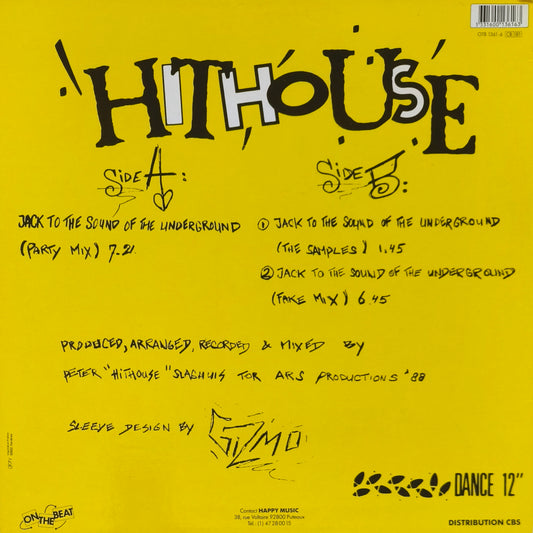 3 131600 136163
OTB 1361-6 CB 681
HITHOUSE
SIDE A:
JACK TO THE SOUND OF THE UNDERGROUND
(PARTY MIX) 7.21
SIDE B:
① JACK TO THE SOUND OF THE UNDERGROUND
(THE SAMPLES) 1.45
② JACK TO THE SOUND OF THE UNDERGROUND
(FAKE MIX) 6.45
PRODUCED, ARRANGED, RECORDED & MIXED BY
PETER "HITHOUSE" SLAGHUIS FOR ARS PRODUCTIONS '88
SLEEVE DESIGN BY GIZMO
ON THE BEAT
Contact HAPPY MUSIC
38, rue Voltaire 92800 Puteaux
Tél.: (1) 47 28 00 15
DANCE 12"
DISTRIBUTION CBS